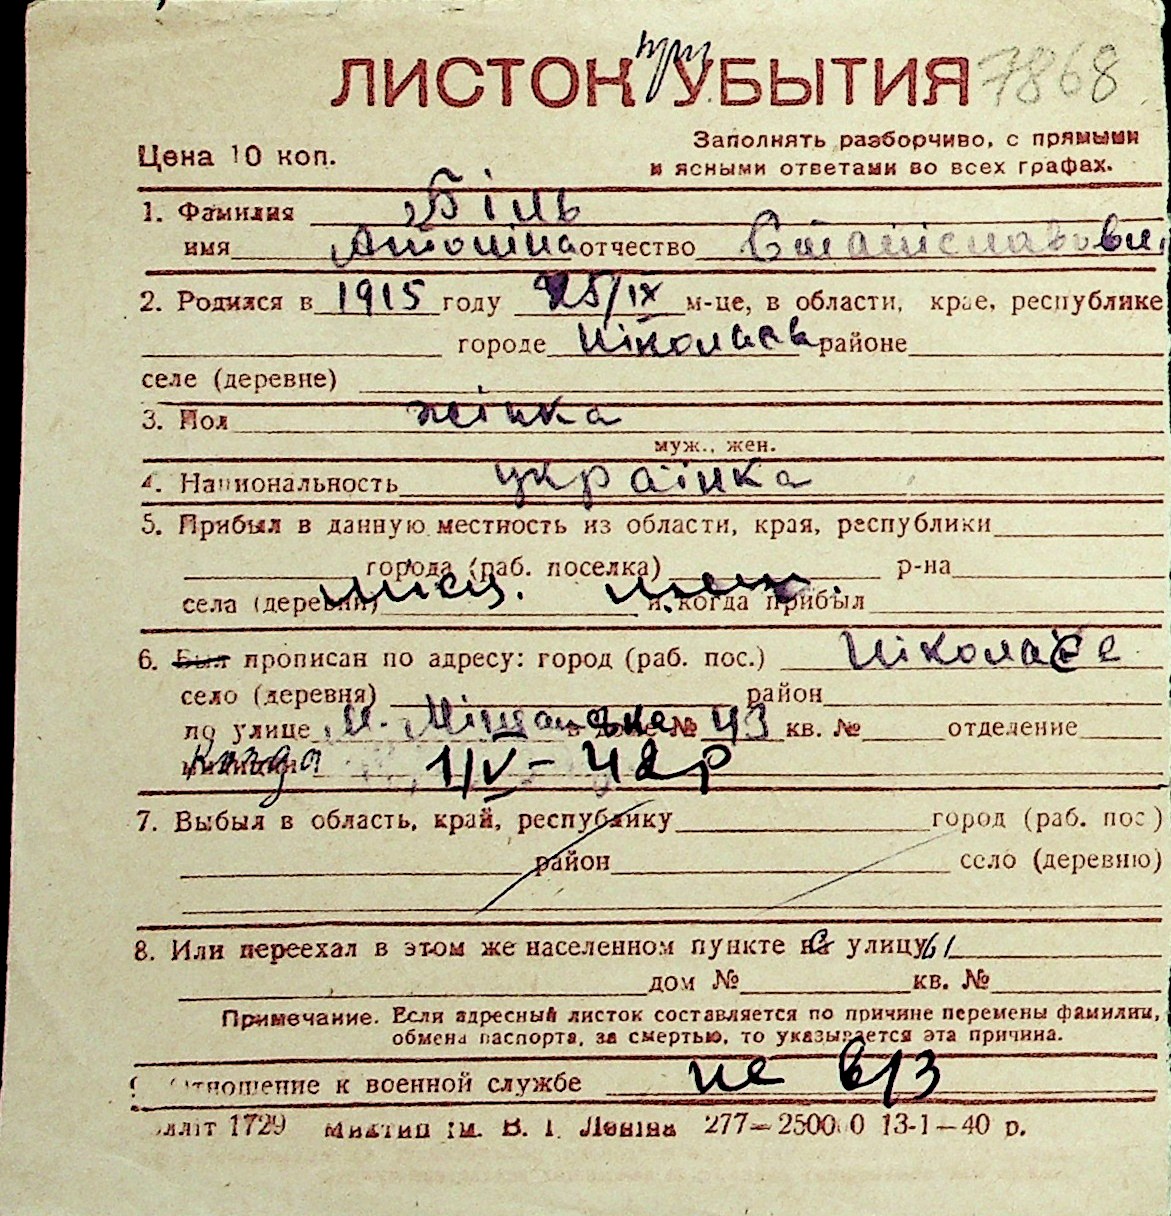 ЛИСТОК при УБЫТИЯ 7868
Цена 10 коп.
Заполнять разборчиво, с прямыми
и ясными ответами во всех графах.
1. Фамилия Біль
имя Антоніна отчество Станіславовн
2. Родился в 1915 году 25/IX м-це, в области, крае, республике
городе Ніколаєв районе
селе (деревне)
3. Пол жінка
муж., жен.
4. Национальность українка
5. Прибыл в данную местность из области, края, республики
города (раб. поселка) р-на
села (деревни) и когда прибыл
місц. меш.
6. Был прописан по адресу: город (раб. пос.) Ніколаєве
село (деревня) район
по улице М. Міщанська в доме № 43 кв. № отделение
милиции Когда 1/V - 42 р
7. Выбыл в область, край, республику город (раб. пос)
район село (деревню)
8. Или переехал в этом же населенном пункте на улицу
дом № кв. №
Примечание. Если адресный листок составляется по причине перемены фамилии,
обмена паспорта, за смертью, то указывается эта причина.
9 Отношение к военной службе не в/з
1729 ім. В. І. Леніна 277—25000 13-1—40 р.